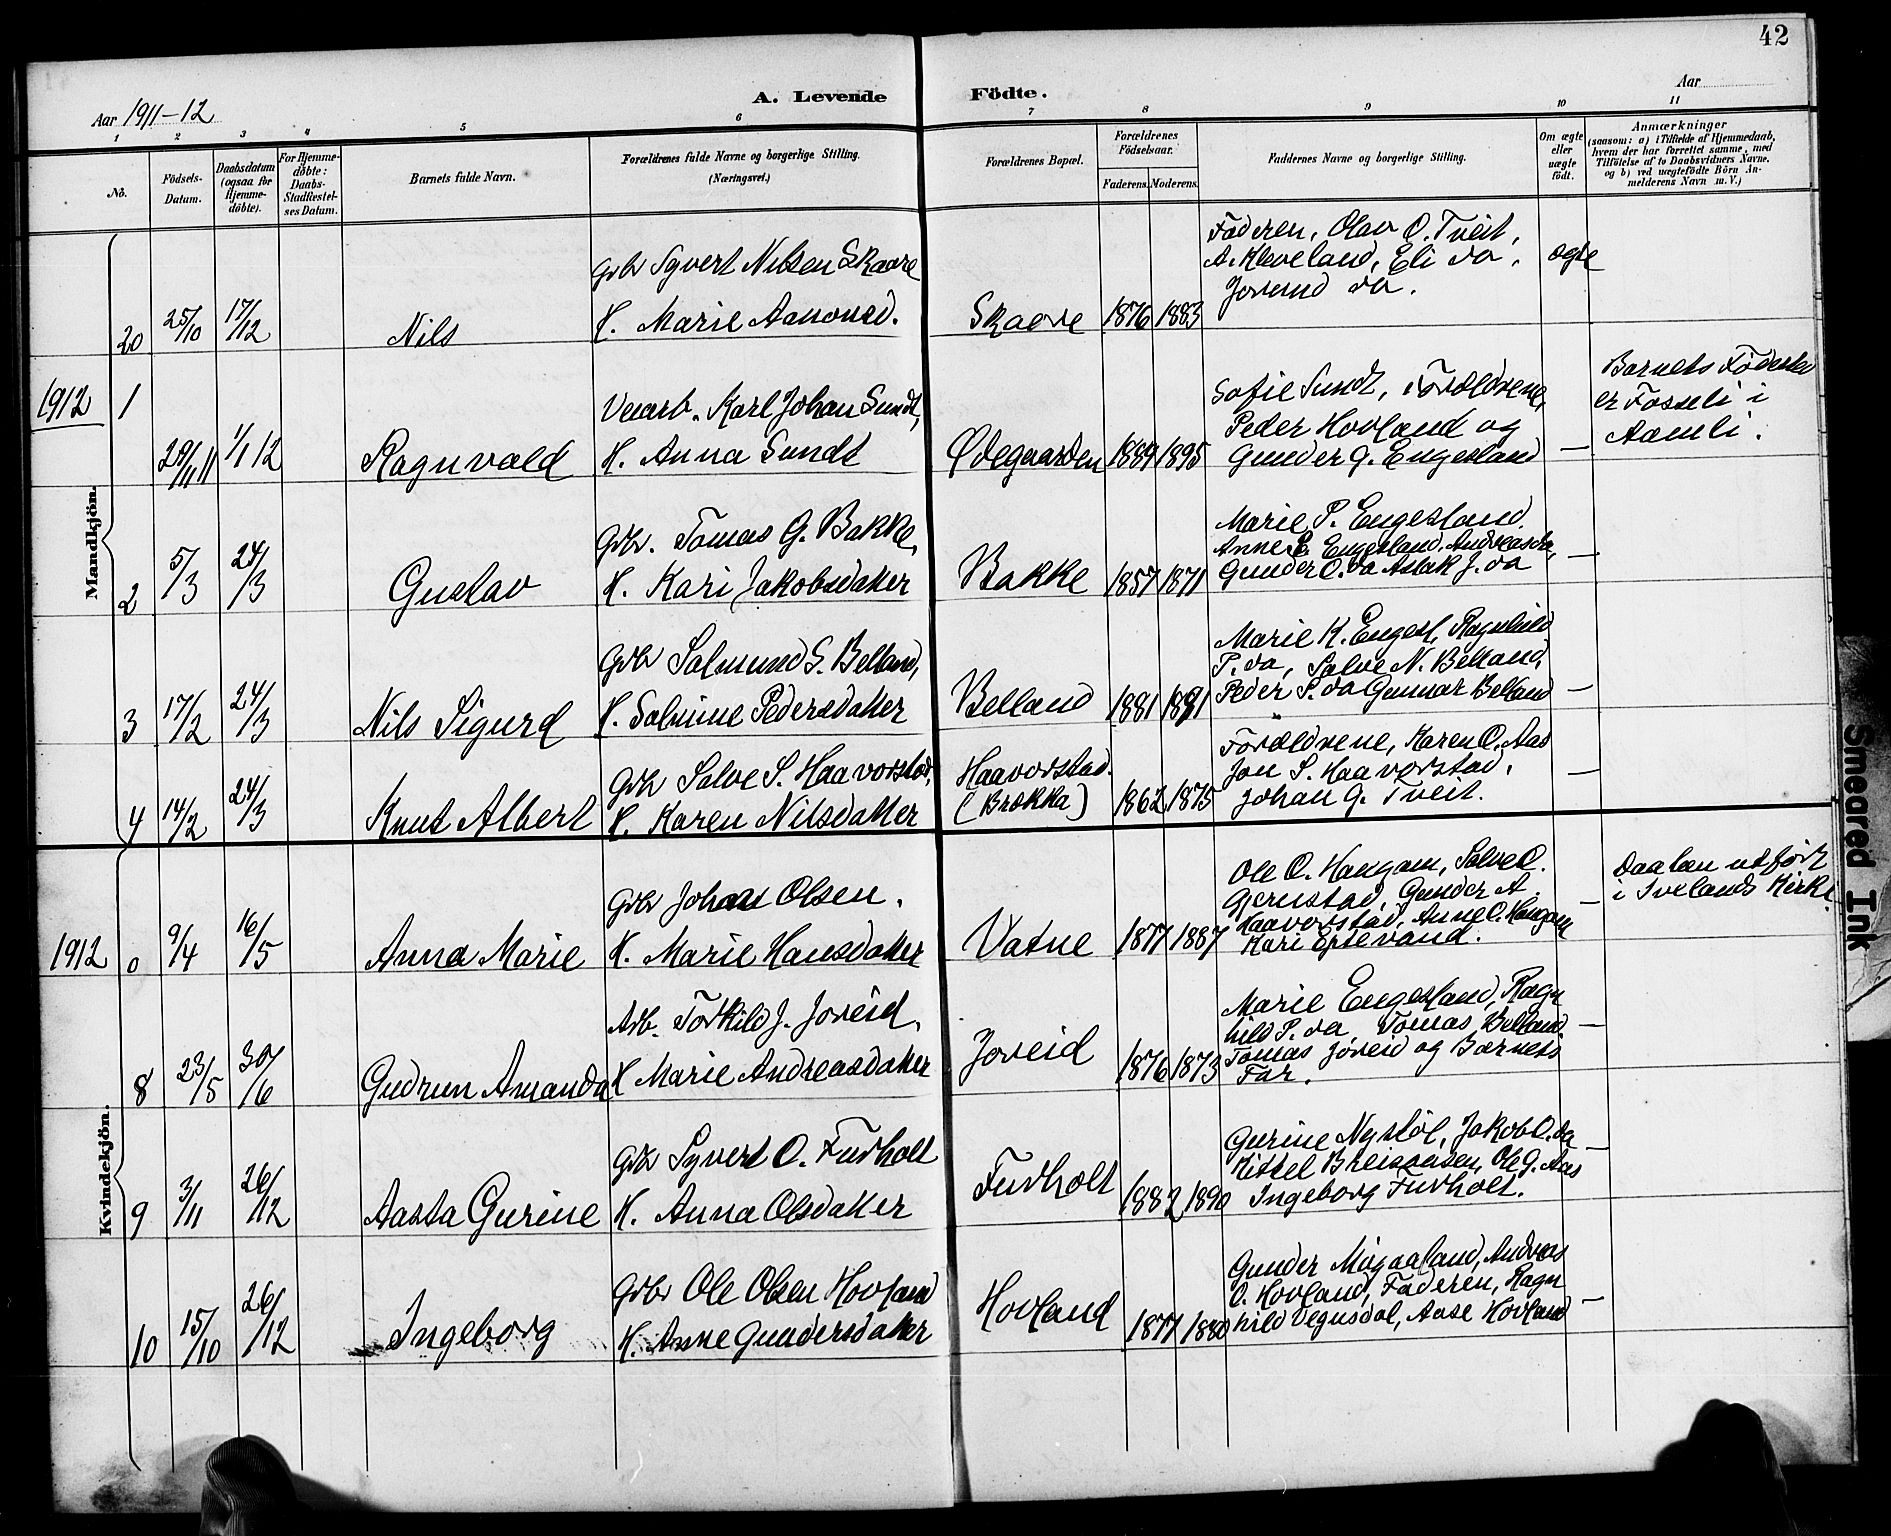 42
Aar 1911-12
A. Levende Födte.
Aar
1 2 3 4 5 6 7 8 9 10 11
No.
Födsels-Datum.
Daabsdatum (ogsaa for Hjemme-döbte).
For Hjemme-döbte: Daabs-Stadfestel-ses Datum.
Barnets fulde Navn.
Forældrenes fulde Navne og borgerlige Stilling. (Næringsvei.)
Forældrenes Bopæl.
Forældrenes Födselsaar.
Faderens. Moderens.
Faddernes Navne og borgerlige Stilling.
Om ægte eller uægte födt.
Anmærkninger
(saasom: a) i Tilfælde af Hjemmedaab,
hvem der har forrettet samme, med
Tilföielse af to Daabsvidners Navne,
og b) ved uægtefödte Börn An-
melderens Navn m. V.)
Mandkjön.
20 25/10 17/12 Nils
Grbr Syvert Nilsen Skaare
H. Marie Aanonsd.
Skaare 1876 1883
Faderen, Olav O. Tveit,
A. Kleveland, Eli do,
Jorund do.
ægte
1912 1
29/11 11 1/1 12 Ragnvald
Veiarb. Karl Johan Sundt,
H. Anna Sundt
Ødegaarden 1889 1895
Sofie Sundt, Forældrene,
Peder Hovland og
Gunder G. Engesland —
Barnets Fødested
er Fosseli i
Aamli.
2 5/3 24/3 Gustav
Grbr. Tomas G. Bakke,
H. Kari Jakobsdatter
Bakke 1857 1871
Marie P. Engesland,
Anne E. Engesland, Andreas do,
Gunder O. do Aslak J. do —
3 17/2 24/3 Nils Sigurd
Grbr Salmund S. Belland,
H. Salmine Pedersdatter
Belland 1881 1891
Marie K. Engesl, Ragnhild
P. do, Salve N. Belland,
Peder S. do Gunnar Belland —
4 14/2 24/3 Knut Albert
Grbr Salve S. Haavorstad,
H. Karen Nilsdatter
Haavorstad.
(Brækka) 1862 1875
Forældrene, Karen O. Aas
Jon S. Haavorstad,
Johan G. Tveit. —
Kvindekjön.
1912 9/4 16/5 Anna Marie
Grbr Johan Olsen.
H. Marie Hansdatter
Vatne 1877 1887
Ole O. Haugam, Salve O.
Gjerustad, Gunder A.
Haavorsstad, Anne O. Haugam
Kari Eptevand. —
Daaben utført
i Ivelands Kirke.
8 23/5 30/6 Gudrun Amanda
Arb. Torkild J. Joreid,
H. Marie Andreasdatter
Joreid 1876 1873
Marie Engesland, Ragn
hild P. do Tomas Belland
Tomas Joreid og Barnets
Far. —
9 3/11 26/12 Aasta Gurine
Grbr Syvert O. Furholt
H. Anna Olsdatter
Furholt 1882 1890
Gurine Nystöl, Jakob O. do
Kittel Breisaasen, Ole G. Aas
Ingeborg Furholt. —
10 15/10 26/12 Ingeborg
Grbr Ole Olsen Hovland
H. Anne Gundersdatter
Hovland 1877 1880
Gunder Mögaaland, Andreas
O. Hovland, Faderen, Ragn
hild Vegusdal, Aase Hovland —
Smeared Ink